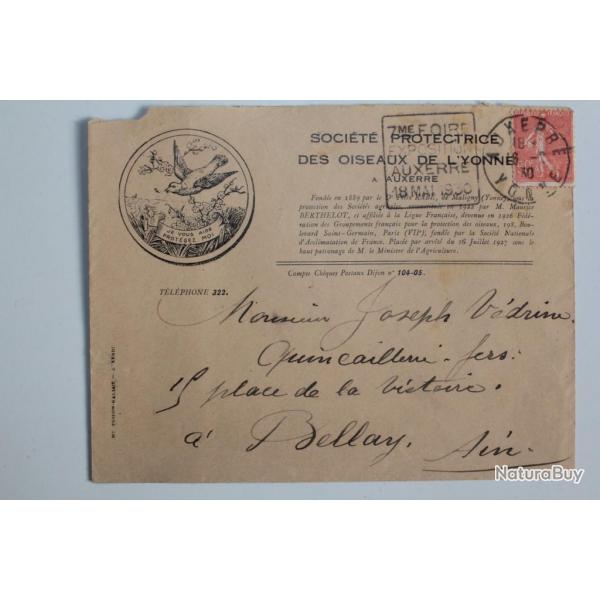 SOCIÉTÉ PROTECTRICE
DES OISEAUX DE L'YONNE
A AUXERRE
7ME FOIRE
EXPOSITION
AUXERRE
18 MAI 1930
AUXERRE
18
30
YONNE
Fondée en 1889 par le Dr RABÉ, de Maligny (Yonne),
protection des Sociétés agricoles, en 1922 par M. Maurice
BERTHELOT, et affiliée à la Ligue Française, devenue en 1926 Fédé-
ration des Groupements français pour la protection des oiseaux, 198, Bou-
levard Saint-Germain, Paris (VIIe), fondée par la Société Nationale
d'Acclimatation de France. Placée par arrêté du 26 Juillet 1927 sous le
haut patronage de M. le Ministre de l'Agriculture.
Compte Chèques Postaux Dijon n° 104-05.
JE VOUS AIDE
PROTÉGEZ MOI
TÉLÉPHONE 322.
Monsieur Joseph Védrine.
Quincaillerie-fers.
15 place de la Victoire.
à Bellay.
Ain.
NaturaBuy